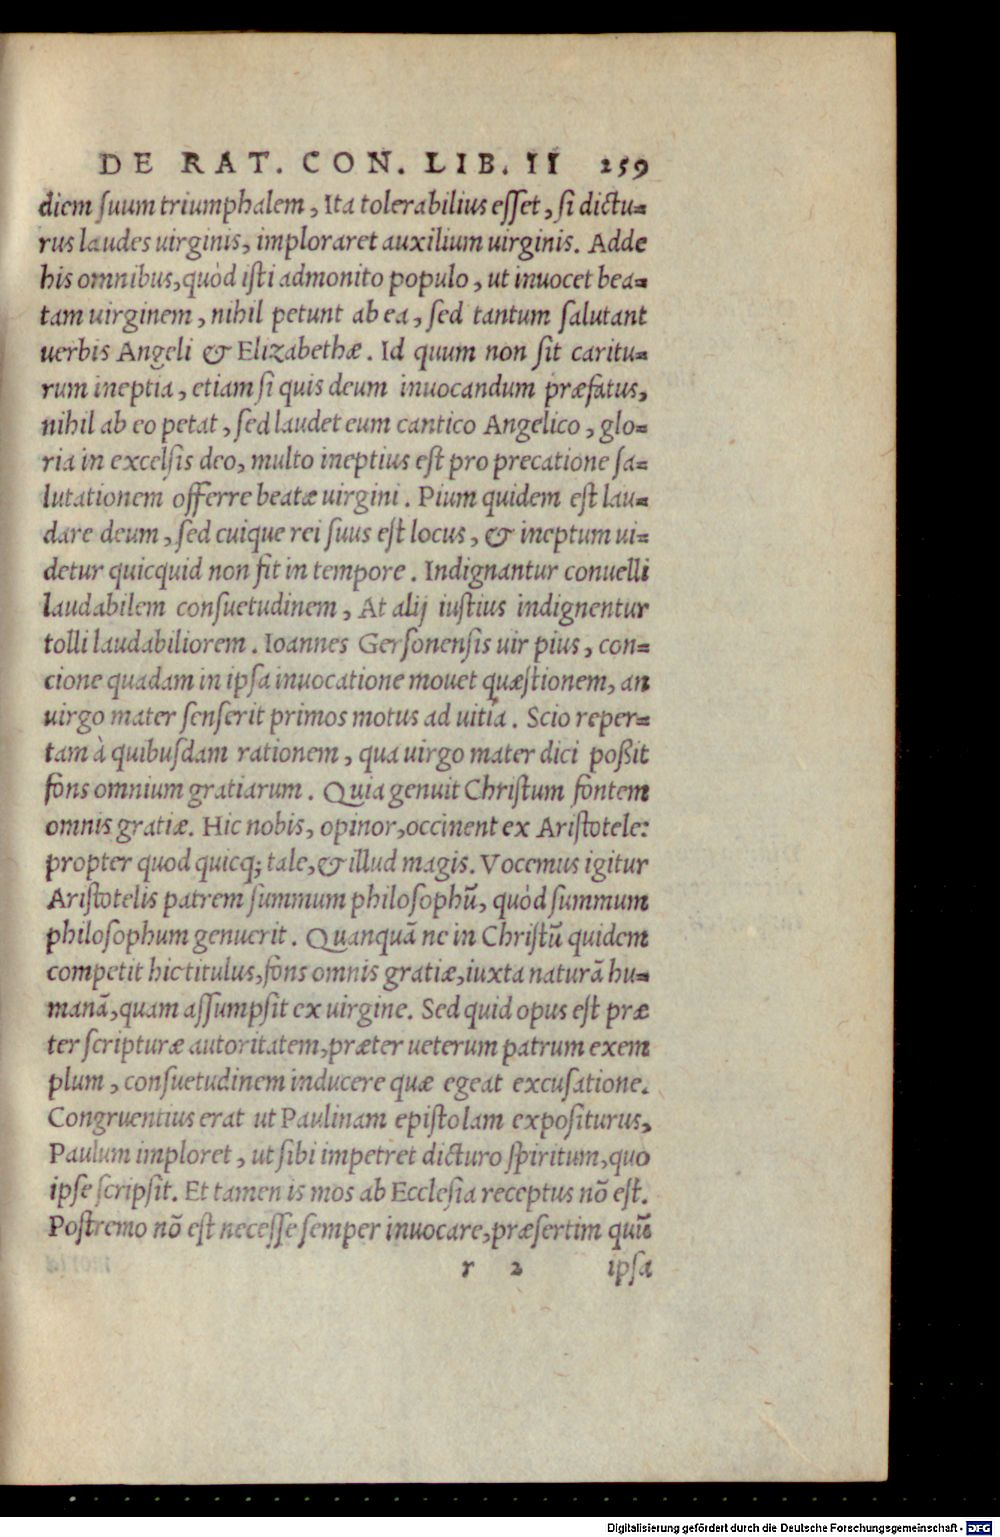 DE RAT. CON. LIB. II 259
diem suum triumphalem, Ita tolerabilius esset, si dictu=
rus laudes uirginis, imploraret auxilium uirginis. Adde
his omnibus, quòd isti admonito populo, ut inuocet bea=
tam uirginem, nihil petunt ab ea, sed tantum salutant
uerbis Angeli & Elizabethæ. Id quum non sit caritu=
rum ineptia, etiam si quis deum inuocandum præfatus,
nihil ab eo petat, sed laudet eum cantico Angelico, glo=
ria in excelsis deo, multo ineptius est pro precatione sa=
lutationem offerre beatæ uirgini. Pium quidem est lau=
dare deum, sed cuique rei suus est locus, & ineptum ui=
detur quicquid non fit in tempore. Indignantur conuelli
laudabilem consuetudinem, At alij iustius indignentur
tolli laudabiliorem. Ioannes Gersonensis uir pius, con=
cione quadam in ipsa inuocatione mouet quæstionem, an
uirgo mater senserit primos motus ad uitia. Scio reper=
tam à quibusdam rationem, qua uirgo mater dici poßit
fons omnium gratiarum. Quia genuit Christum fontem
omnis gratiæ. Hic nobis, opinor, occinent ex Aristotele:
propter quod quicq; tale, & illud magis. Vocemus igitur
Aristotelis patrem summum philosophū, quòd summum
philosophum genuerit. Quanquā ne in Christū quidem
competit hic titulus, fons omnis gratiæ, iuxta naturā hu=
manā, quam assumpsit ex uirgine. Sed quid opus est præ
ter scripturæ autoritatem, præter ueterum patrum exem
plum, consuetudinem inducere quæ egeat excusatione.
Congruentius erat ut Paulinam epistolam expositurus,
Paulum imploret, ut sibi impetret dicturo spiritum, quo
ipse scripsit. Et tamen is mos ab Ecclesia receptus nō est.
Postremo nō est necesse semper inuocare, præsertim quū
r 2 ipsa
Digitalisierung gefördert durch die Deutsche Forschungsgemeinschaft - DFG